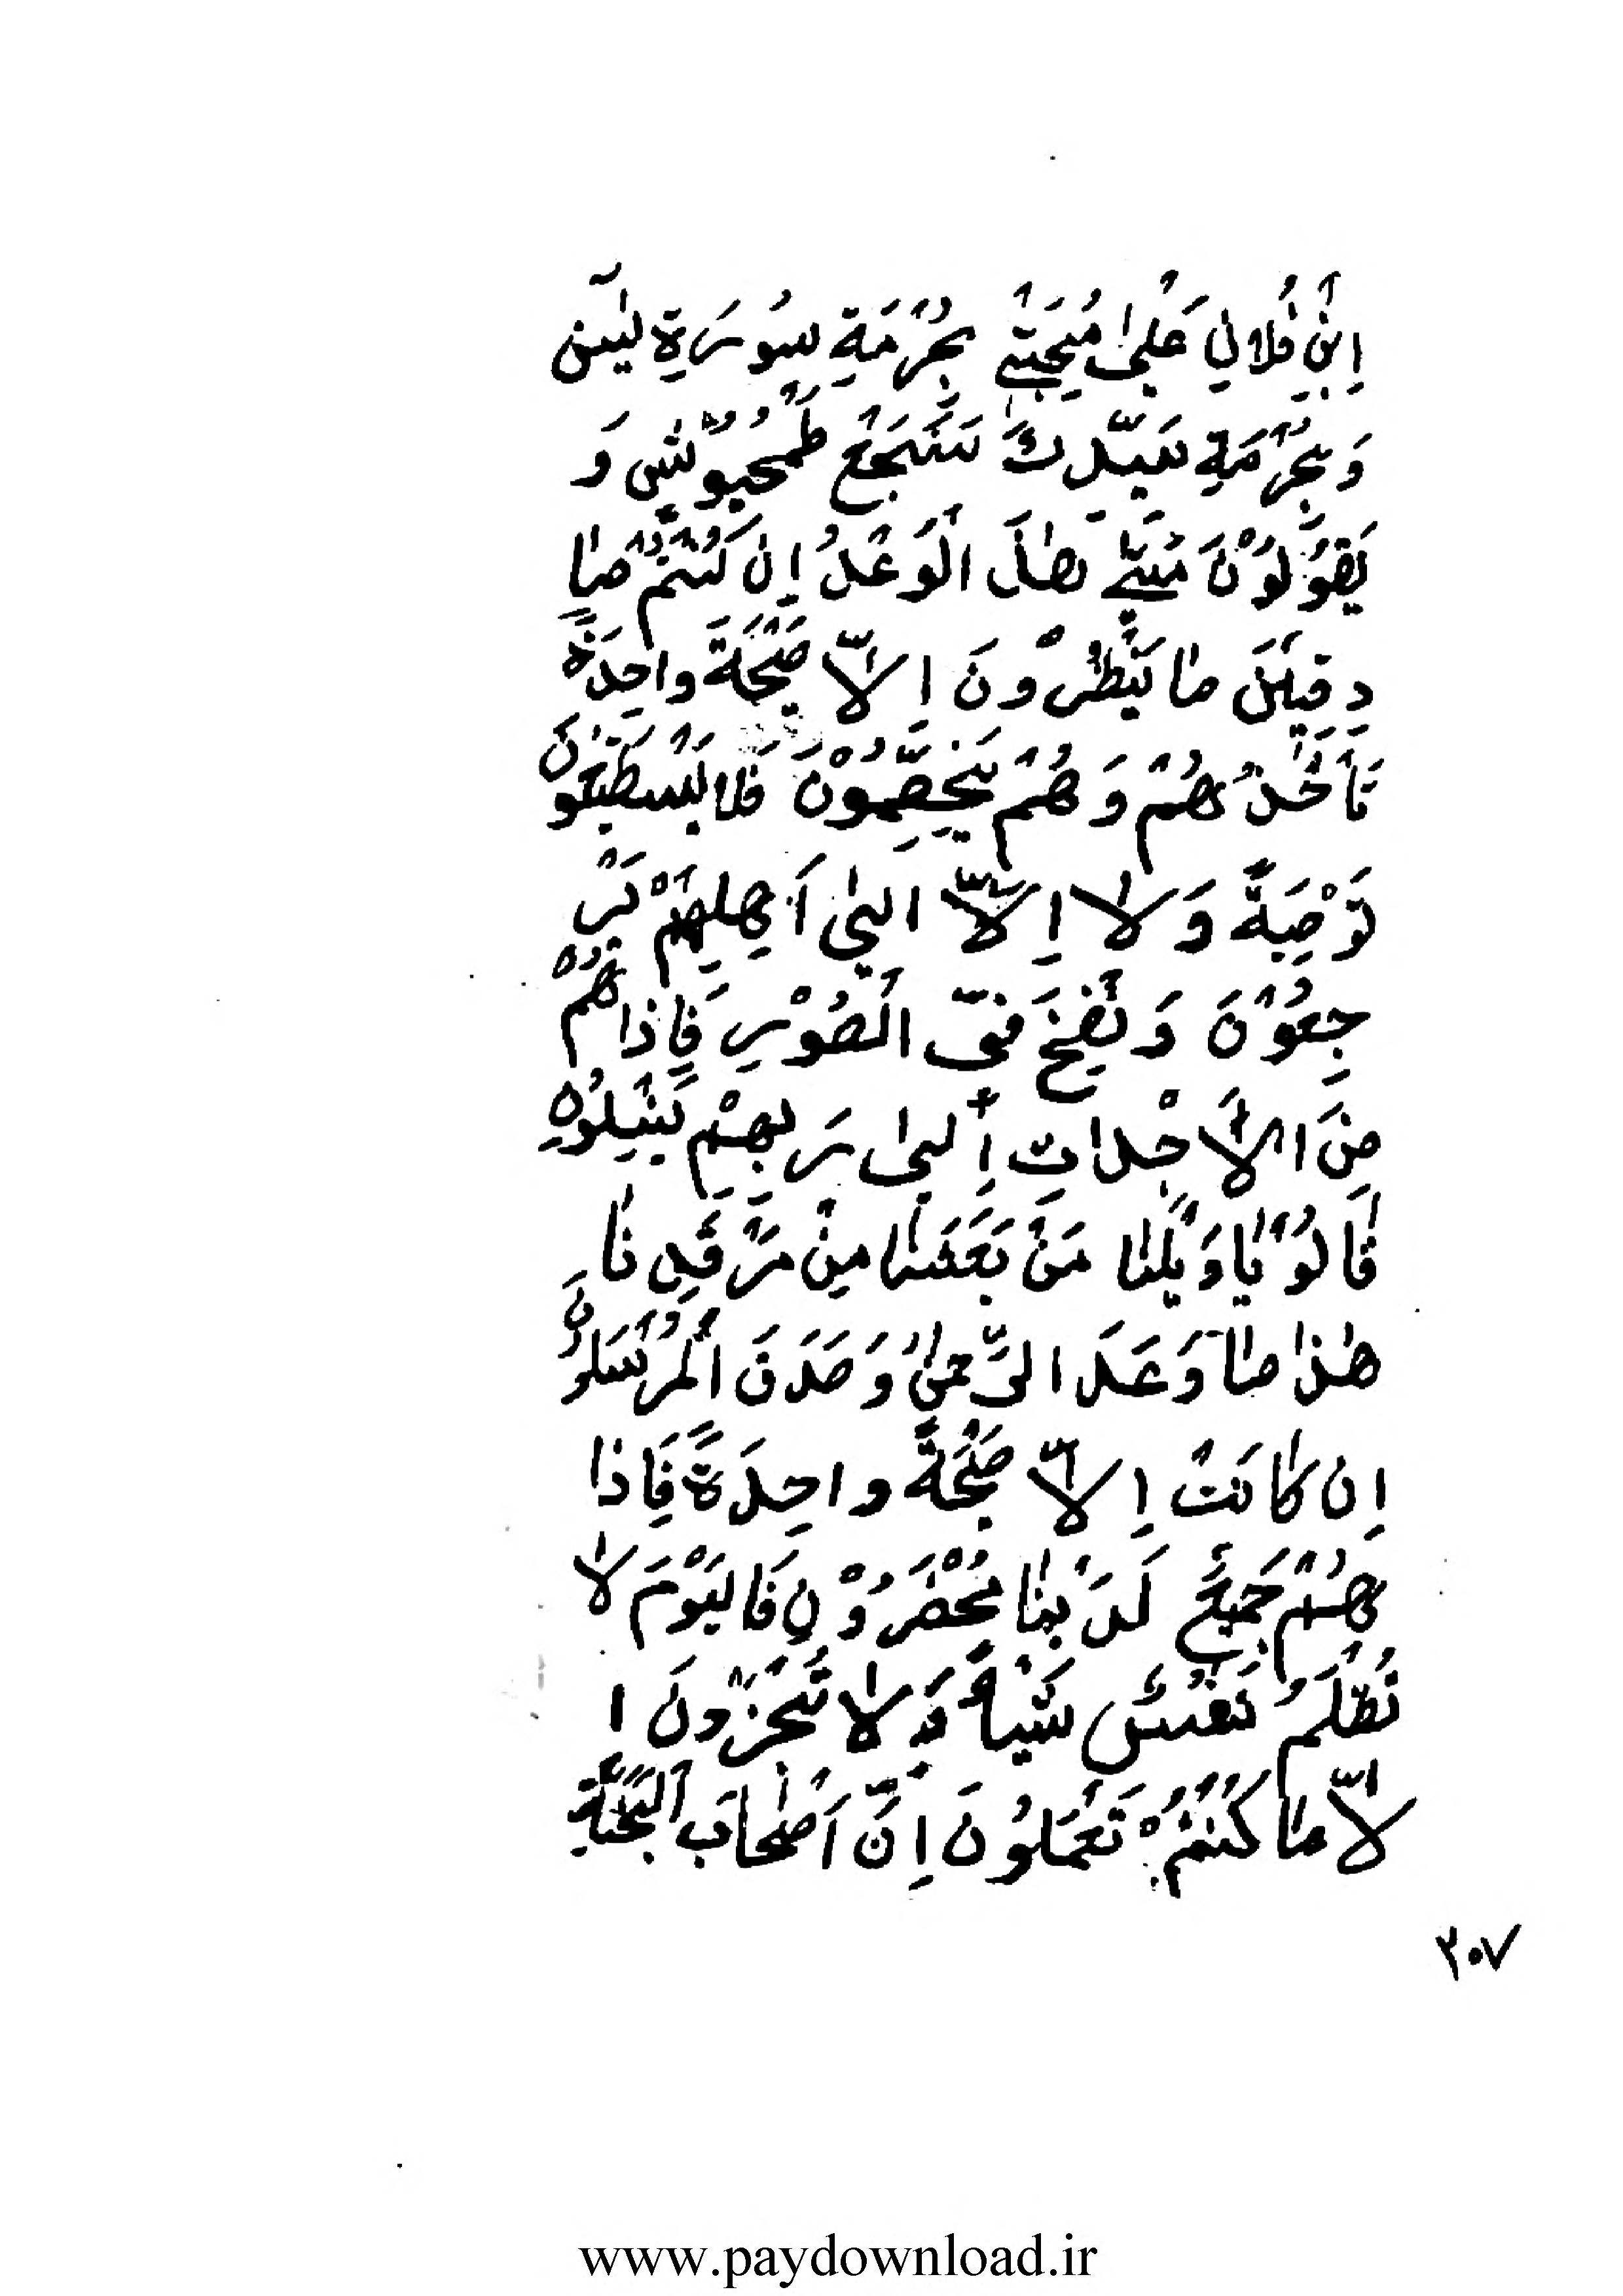 اِبْنِ فُلانِ عَلىٰ مُحِبَّتِي بِحُرْمَةِ سُورَةِ يٰسٓ
وَ بِحُرْمَةِ سَيِّدِكَ وَ
يَقُوْلُوْنَ مَتىٰ هٰذَا الْوَعْدُ اِنْ كُنْتُمْ صٰا
دِقيٖنَ مٰا يَنْظُرُونَ اِلاّٰ صَيْحَةً واحِدَةً
تَأخُذُهُمْ وَ هُمْ يَخِصِّمُوْنَ فَلا يَسْتَطيٖعُونَ
تَوْصِيَةً وَلا اِلاّٰ اليٰ اَهِلِهِمْ يَرْ
جِعُوْنَ وَ نُفِخَ فىٖ الصُوْرِ فَاِذا هُمْ
مِنَ الْاَجْداثِ اِلىٰ رَبِهِمْ يَنْسِلُوْنِ
قٰالُوْ يٰا وَيْلَنٰا مَنْ بَعَثَنٰا مِنْ مَرْقَدِنٰا
هٰذا مٰا وَعَدَ الرَّحمٰنُ وَ صَدَقَ الْمُرْسَلُونَ
اِن كٰانَتْ اِلاّٰ صَيْحَةً واحِدَةً فَاِذا
هُمْ جَميٖعٌ لَدَيْنٰا مُحْضَرُوْنِ فَاليَوْمَ لاٰ
تُظْلَمُ نَفْسٌ شَيْأً وَلاٰ تُجْزَوْنَ ا
لاّٰ مٰا كُنْتُمْ تَعْمَلُونَ اِنَّ اَصْحٰابَ الْجَنَّةِ
۲۰۷
www.paydownload.ir